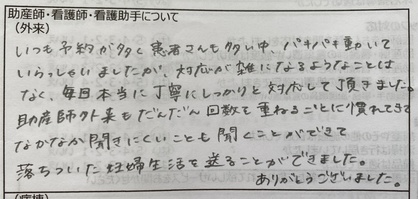 助産師・看護師・看護助手について
(外来)
いつも予約が多く患者さんも多い中、パキパキ動いて
いらっしゃいましたが、対応が雑になるようなことは
なく、毎回本当に丁寧にしっかりと対応して頂きました。
助産師外来もだんだん回数を重ねるごとに慣れてきて
なかなか聞きにくいことも聞くことができて
落ちついた妊婦生活を送ることができました。
ありがとうございました。
(病棟)